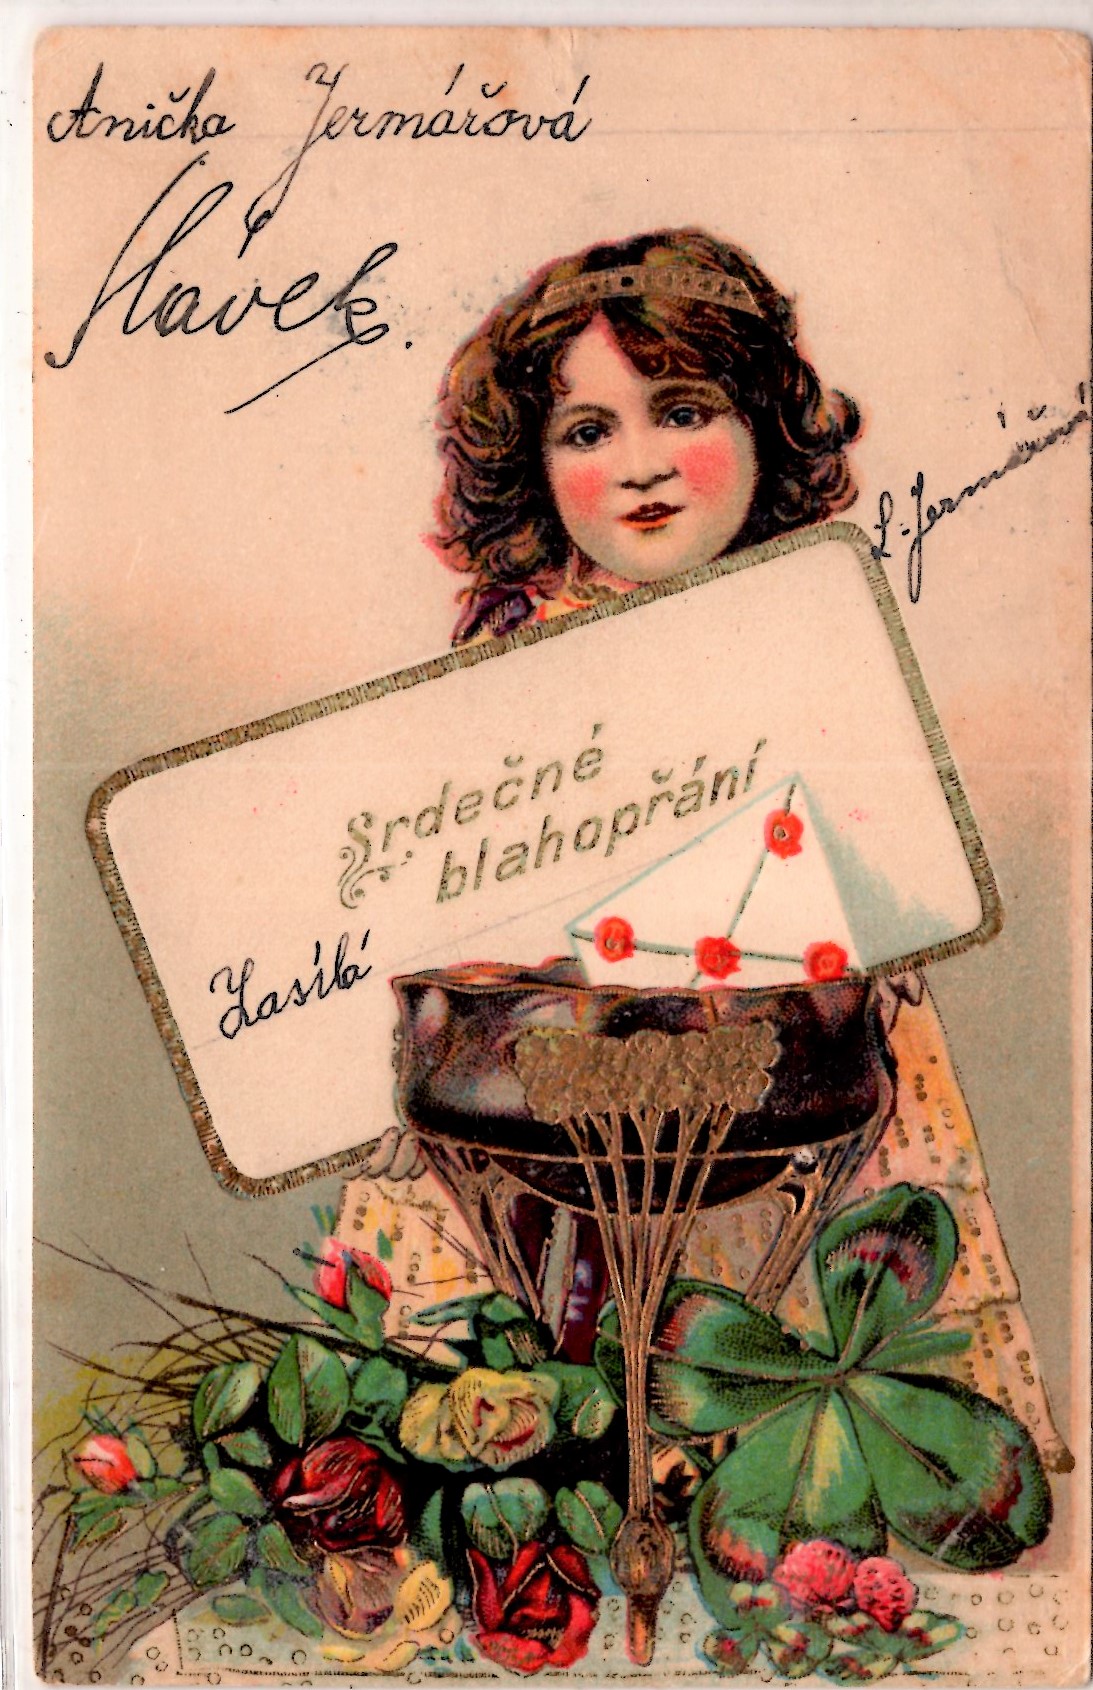 Anička Jermářová
Slávek.
L. Jermářová
Srdečné
blahopřání
Zasílá